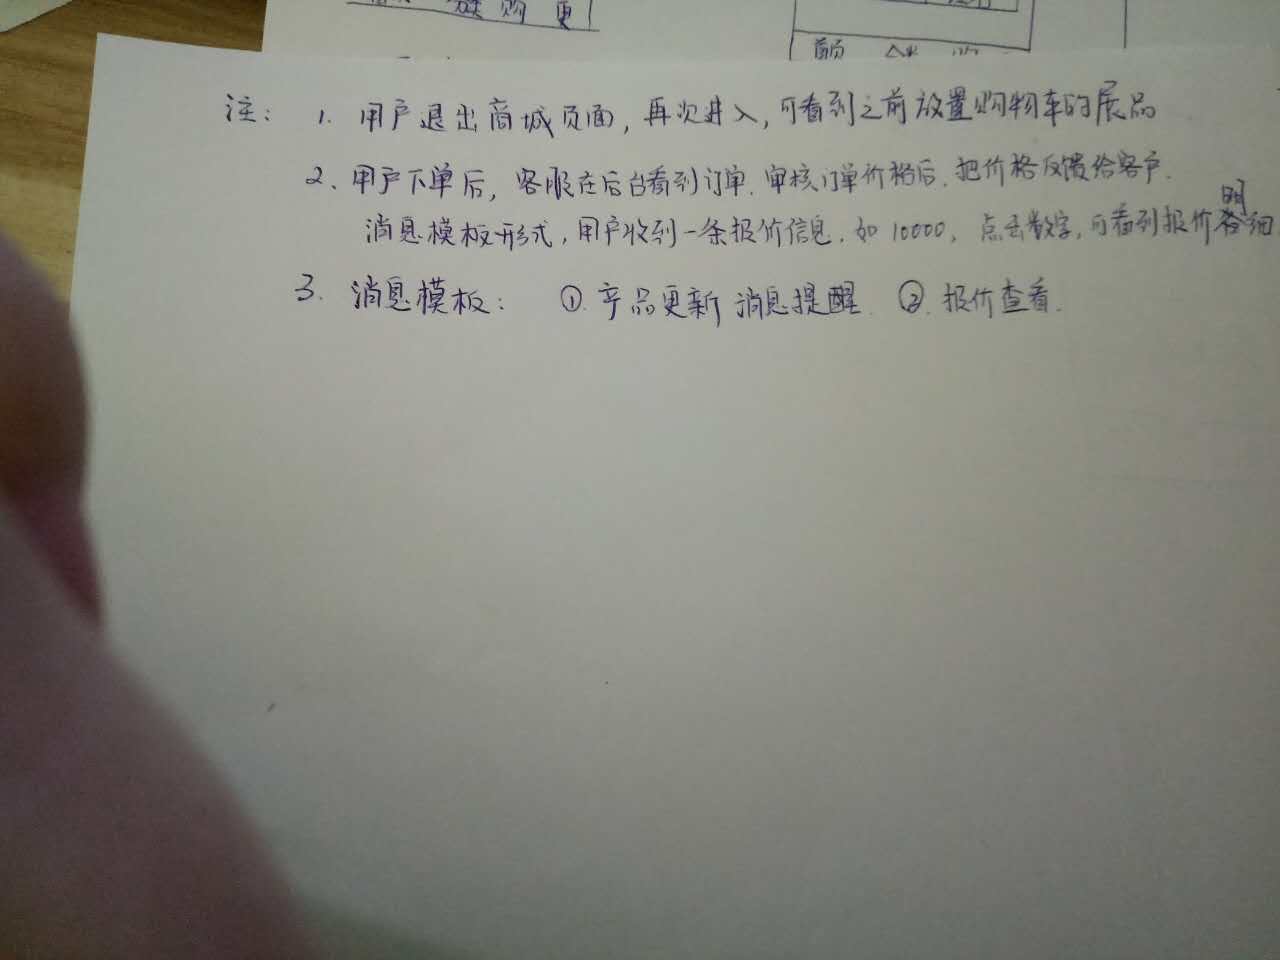 购 更
注: 1. 用户退出商城页面,再次进入,可看到之前放置购物车的展品
2、用户下单后,客服在后台看到订单.审核订单价格后.把价格反馈给客户.
消息模板形式,用户收到一条报价信息.如10000,点击数字,可看到报价明细
3. 消息模板: ①.产品更新消息提醒. ②.报价查看.